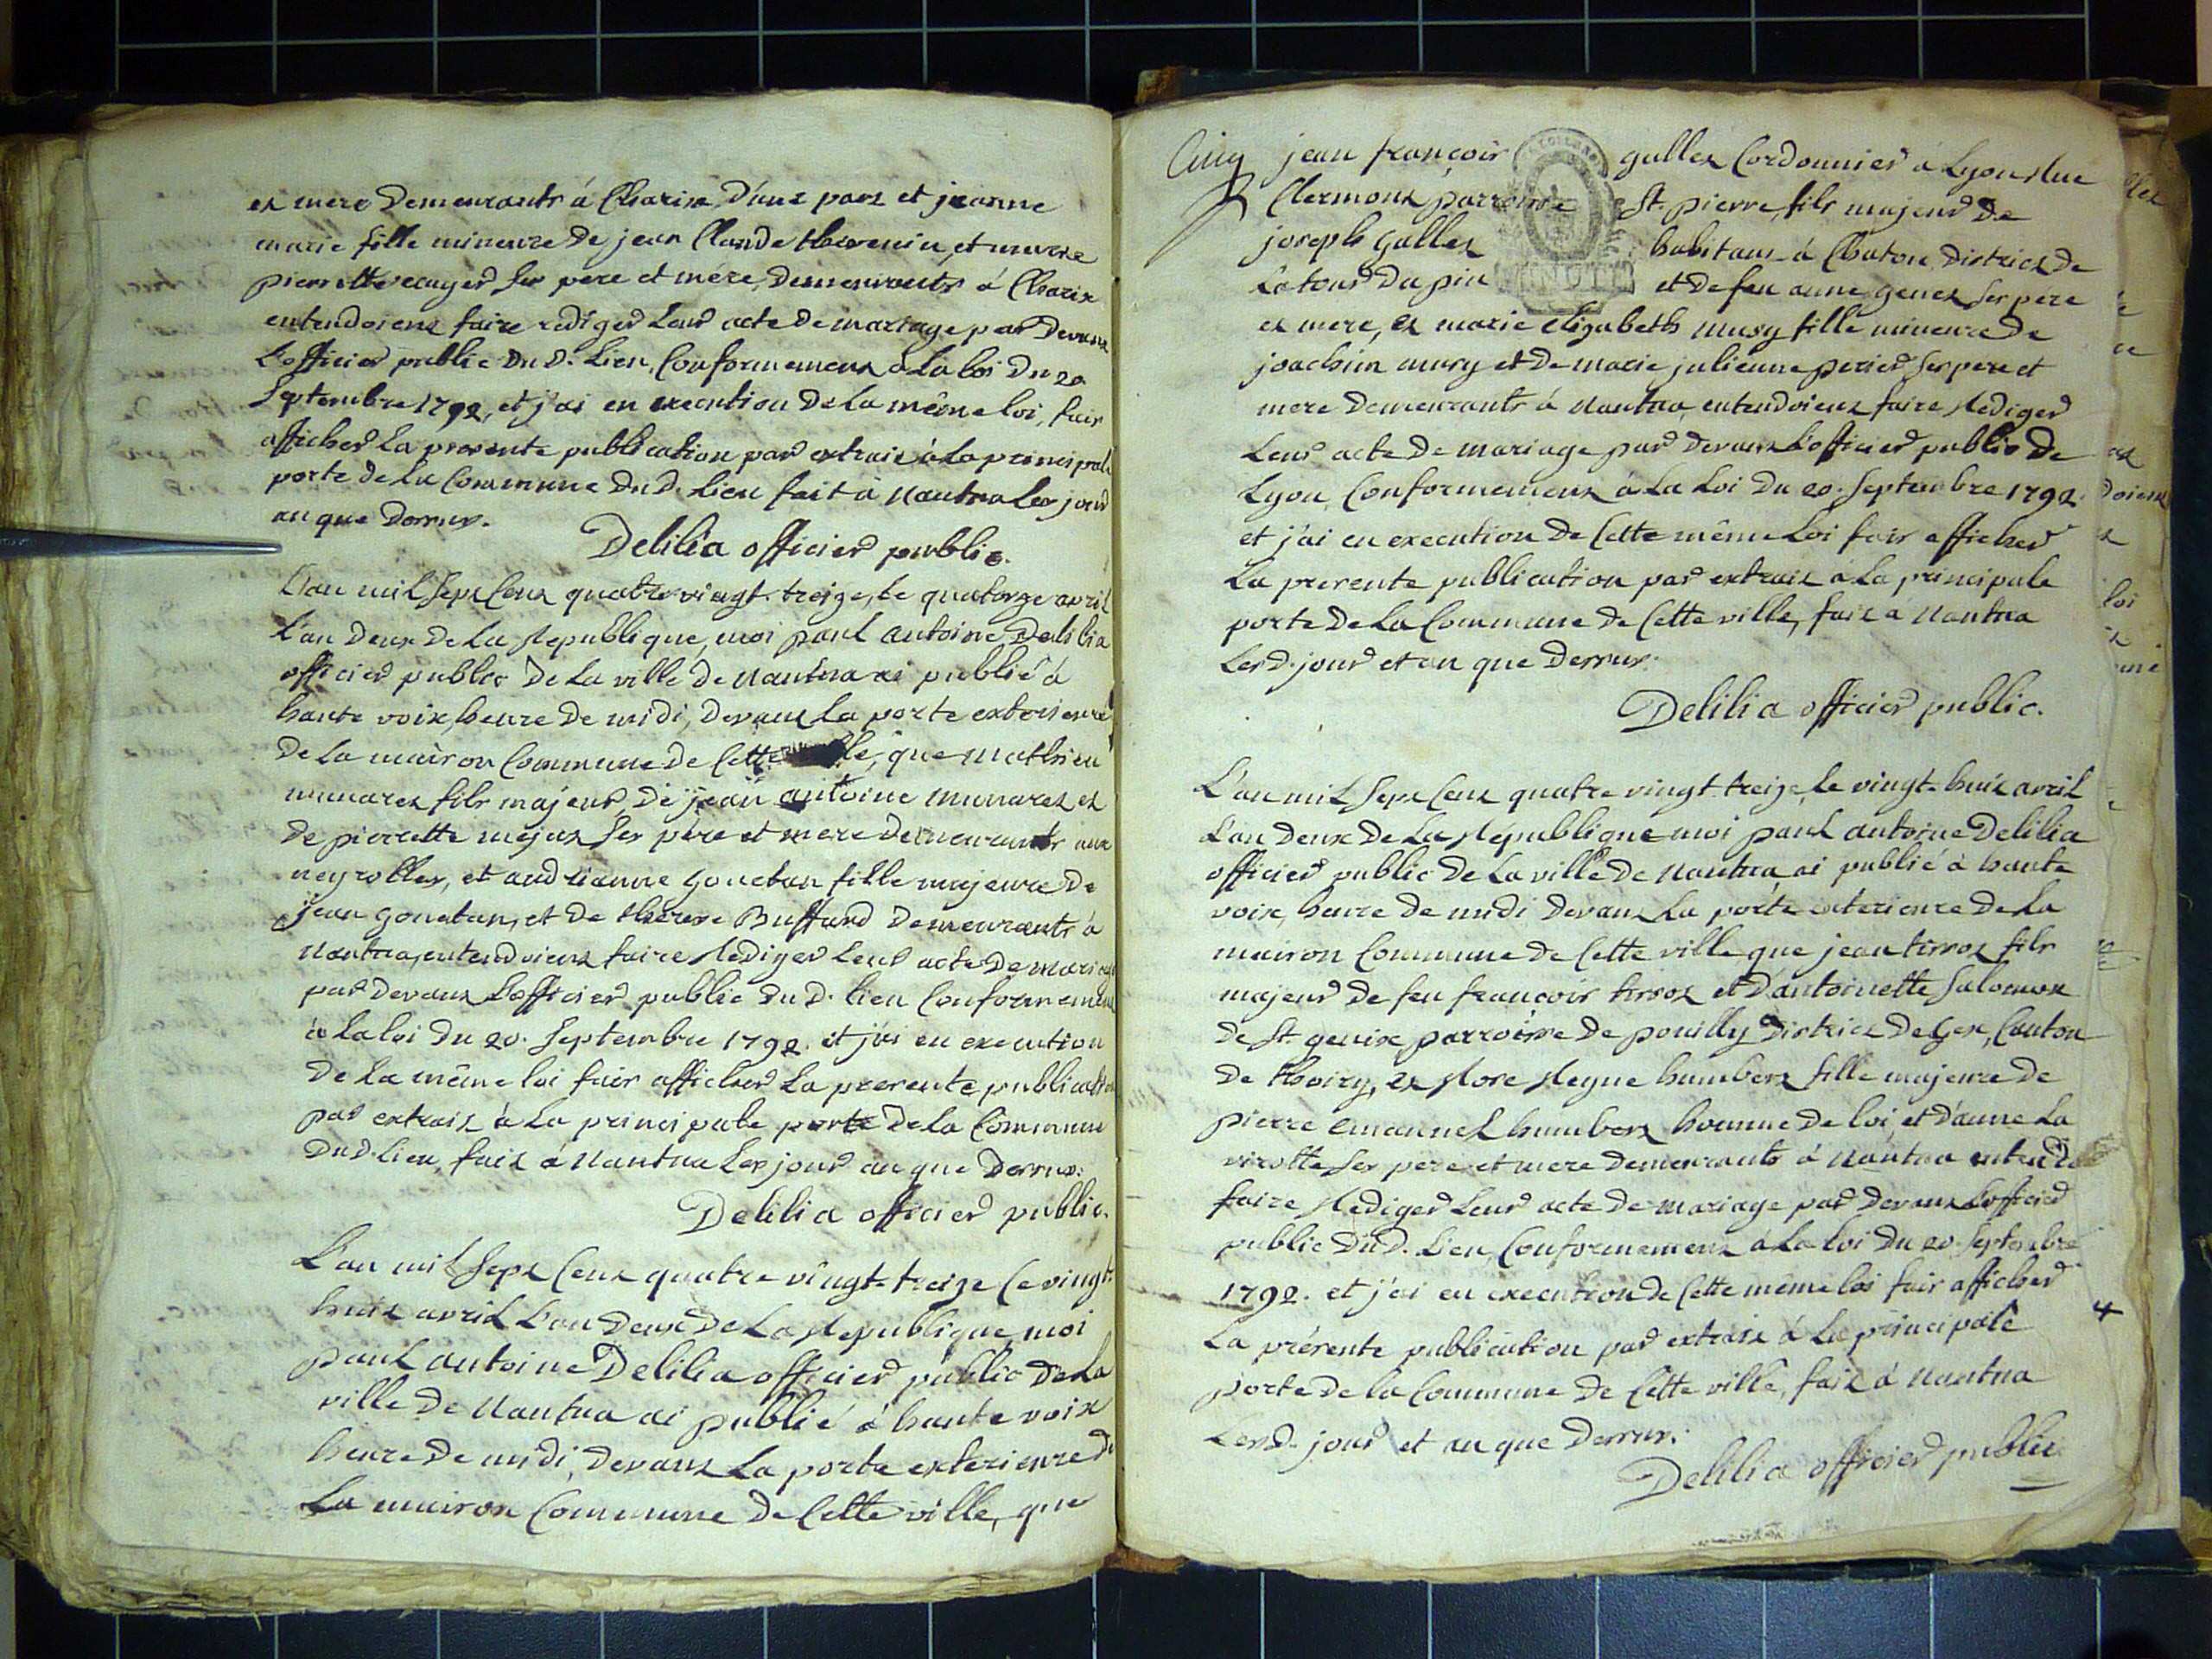 et mere demeurants á Charix d'une part et jeanne
marie fille mineure de jean Claude thevenin, et
pierrette ses pere et mére, demeurants á Charix
entendoient faire rediger leur acte de mariage par devant
L'officier public du d. Lieu, Conformement à La loi du 20
Septembre 1792, et j'ai en execution de La même loi, fait
afficher La presente publication par extrait à La principale
porte de La Commune du d. Lieu fait à Nantua Les jour
an que dessus.
Delilia officier public.
L'an mil Sept Cent quatre vingt-treize, le quatorze avril
L'an deux de La Republique, moi paul antoine Delilia
officier public de La ville de Nantua ai publié à
haute voix, heure de midi, devant La porte exterieure
de La maison Commune de Cette que mathieu
munaret fils majeur de jean antoine munaret et
de pierrette ses pére et mere demeurants aux
neyrolles, et andrianne gonetan fille majeure de
jean gonetan, et de therese Buffard demeurants à
Nantua, entendoient faire Rediger Leur acte de
par devant L'officier public du d. lieu Conformement
à La loi du 20. Septembre 1792. et j'ai en execution
de La même loi fait afficher La presente publication
par extrait à La principale porte de La Commune
du d. Lieu, fait à Nantua Les jour an que dessus.
Delilia officier public.
L'an mil Sept Cent quatre vingt-treize Le vingt-
huit avril L'an deux de La Republique moi
paul antoine Delilia officier public de La
ville de Nantua ai publié à haute voix
heure de midi, devant La porte exterieure de
La maison Commune de Cette ville, que
Cinq jean françois gallet Cordonnier à Lyon Rue
Clermont parroisse St. pierre, fils majeur de
joseph gallet habitant à Chaton District de
La tour du pin et de feu anne genet ses pére
et mere, et marie elizabeth musy fille mineure de
joachim musy et de marie julienne perier ses pere et
mere demeurants à Nantua, entendoient faire Rediger
Leur acte de mariage par devant L'officier public de
Lyon Conformement à La Loi du 20. Septembre 1792.
et j'ai en execution de Cette même Loi fait afficher
La presente publication par extrait à La principale
porte de La Commune de Cette ville, fait à Nantua
Les d. jour et an que dessus.
Delilia officier public.
L'an mil Sept Cent quatre vingt-treize, Le vingt-huit avril
L'an deux de La République moi paul antoine Delilia
officier public de La ville de Nantua ai publié à haute
voix, heure de midi devant La porte exterieure de La
maison Commune de Cette ville que jean fils
majeur de feu françois et d'antoinette Salomon
de St. genix, parroisse de pouilly District de Gex, Canton
de thoiry, et Rose Reyne humbert fille majeure de
pierre emanuel humbert homme de loi, et d'anne La
virotte Ses pere et mere demeurants à Nantua
faire Rediger Leur acte de mariage par devant L'officier
public du d. Lieu, Conformement à La loi du 20 Septembre
1792. et j'ai en execution de Cette même loi fait afficher
La présente publication par extrait à La principale
porte de La Commune de Cette ville, fait à Nantua
Les d. jour et an que dessus.
Delilia officier public